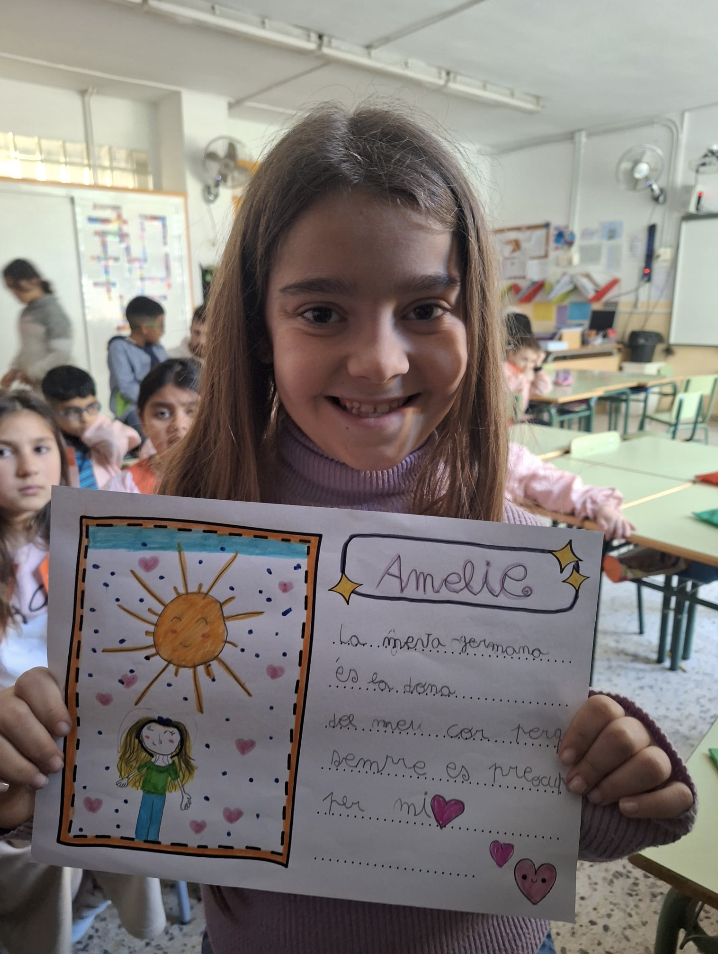 Amelie
La meva germana
és la dona
del meu cor perq
sempre es preocup
per mi